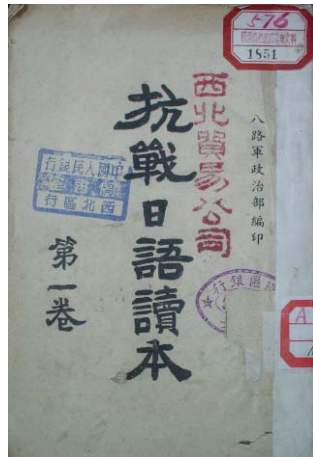 576
1851
八路軍政治部編印
西北貿易公司
抗戰日語讀本
第一卷
中國人民銀行
西北區行
銀行
A